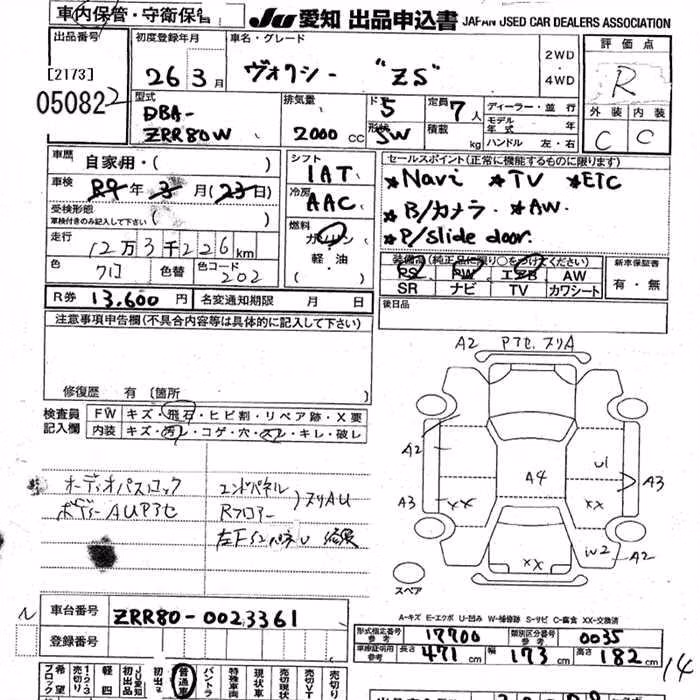 車内保管・守衛保管
JU 愛知 出品申込書 JAPAN USED CAR DEALERS ASSOCIATION
出品番号
[2173]
05082
初度登録年月
26 3月
車名・グレード
ヴォクシー "ZS"
2WD
4WD
評価点
R
外装 内装
C C
型式
DBA-
ZRR80W
排気量
2000 CC
ド 5
形状 SW
定員 7人
積載 kg
ディーラー・並行
モデル年式 年
ハンドル 左・右
車歴 自家用・( )
車検 R9年3月(23日)
受検形態
車検付きのみ記入して下さい ( )
走行
12万3千226km
色 クロ 色替 色コード 202
シフト
IAT
冷房
AAC
燃料
ガソリン
軽・油
( )
セールスポイント(正常に機能するものに限ります)
★Navi ★TV ★ETC
★B/カメラ ★AW.
★P/slide door.
装備品(純正品に限り○をつけてください)
PS PW エアB AW
SR ナビ TV カワシート
新車保証書
有・無
R券 13,600円 名変通知期限 月 日
後日品
注意事項申告欄(不具合内容等は具体的に記入して下さい)
修復歴 有〔箇所
検査員
記入欄
FW キズ・飛石・ヒビ割・リペア跡・X要
内装 キズ・汚レ・コゲ・穴・スレ・キレ・破レ
オーディオパスロック
ボデーAUアセ
エンドパネル
Rフロアー
)ヌリAU
A2 アセ、ヌリA
A2
A3
XX
A4
U1
XX
A3
XX
W2
A2
スペア
A-キズ E-エクボ U-凹み W-補修跡 S-サビ C-腐食 XX-交換済
車台番号 ZRR80-0023361
登録番号
形式指定番号 参考 17700 類別区分番号 参考 0035
車庫証明用 参考 長さ 471 幅 173 高さ 182
14
希望ブロック
1・2・3
売切り
軽
四
JU愛知
初出品
初出
普通車
バントラ
特殊車両
現状車
売切現状
売切VT
出品店